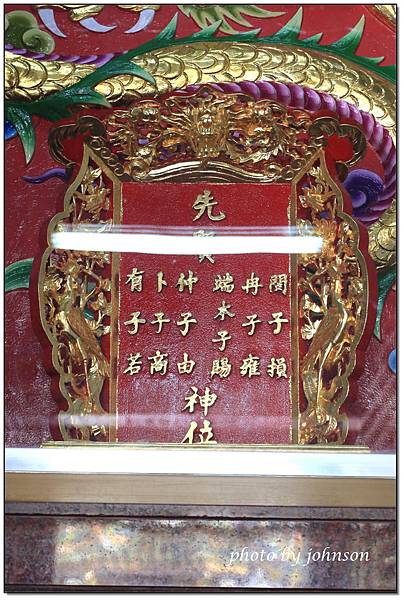 先賢
閔子損
冉子雍
端木子賜
仲子由
卜子商
有子若
神位
photo by johnson